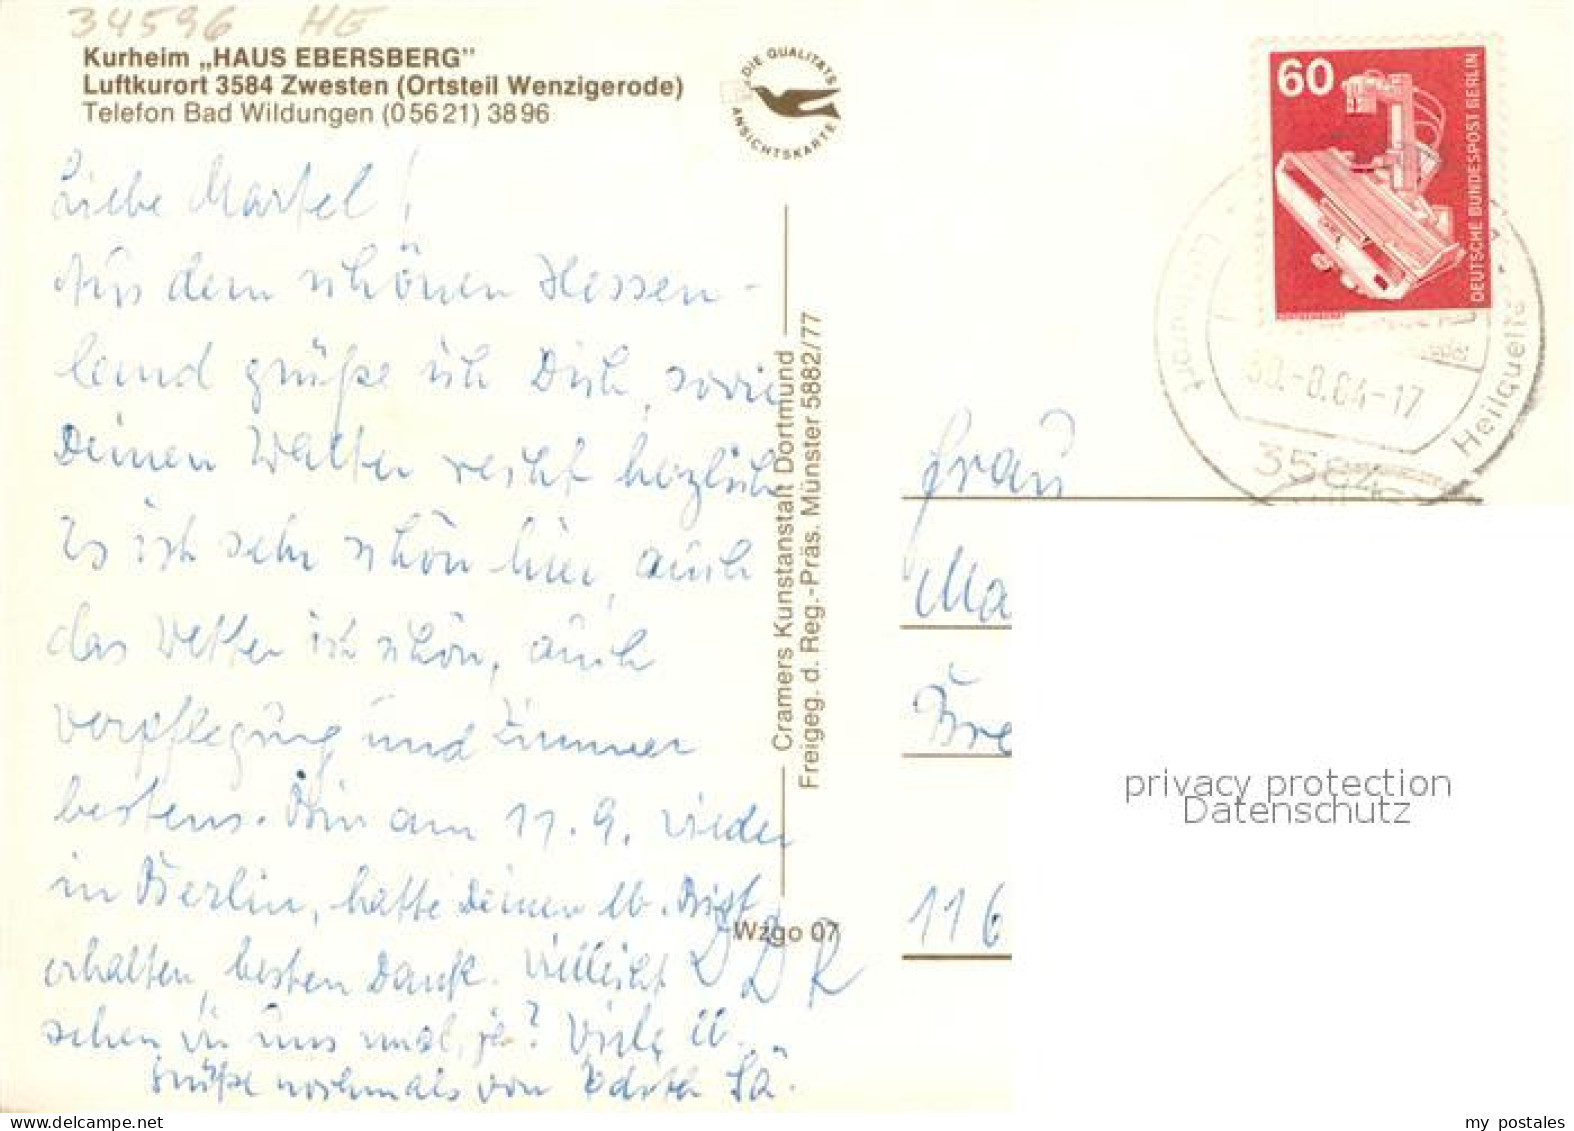 34596 HE
Kurheim „HAUS EBERSBERG"
Luftkurort 3584 Zwesten (Ortsteil Wenzigerode)
Telefon Bad Wildungen (05621) 3896
DIE QUALITÄTS
ANSICHTSKARTE
Liebe Martel!
Aus dem schönen Hessen-
land grüße ich Dich, sowie
Deinen Walter recht herzlich
Es ist sehr schön hier, auch
das Wetter ist schön, auch
Verpflegung und Zimmer
bestens. Bin am 11.9. wieder
in Berlin, hatte Deinen lb. Brief
erhalten, besten Dank. Vielleicht
sehen wir uns mal, ja? Viele
Grüße nochmals von Edith
Cramers Kunstanstalt Dortmund
Freigeg. d. Reg.-Präs. Münster 5882/77
Wzgo 07
60
DEUTSCHE BUNDESPOST BERLIN
Luftkurort
Heilquelle
30.-8.84-17
3584
Frau
Ma
Bre
116
DDR
privacy protection
Datenschutz
my postales